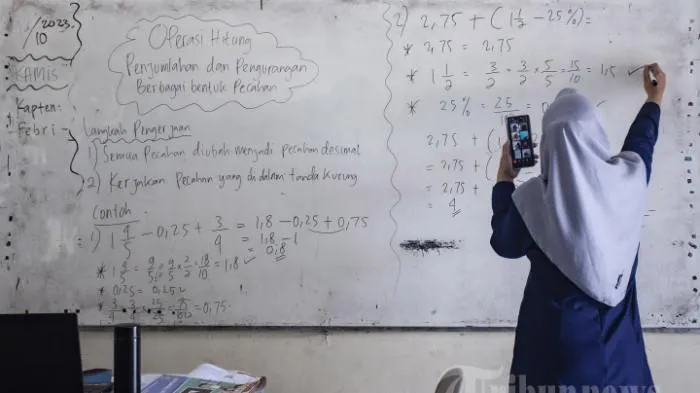 /2023.
10
KAMIS
Kapten:
Febri
Operasi Hitung
Penjumlahan dan Pengurangan
Berbagai bentuk Pecahan
Langkah Pengerjaan
1) Semua Pecahan diubah menjadi pecahan desimal
2) Kerjakan Pecahan yang di dalam tanda kurung
Contoh
1) 1 4/5 - 0,25 + 3/4 = 1,8 - 0,25 + 0,75
= 1,8 - 1
= 0,8
* 0,25 = 0,25
= 0,75
2) 2,75 + (1 1/2 - 25%) =
* 2,75 = 2,75
* 1 1/2 = 3/2 = 3/2 × 5/5 = 15/10 = 1,5 ✓
* 25% = 25
2,75 + (1
= 2,75 + (
= 2,75 +
= 4
Tribunnews